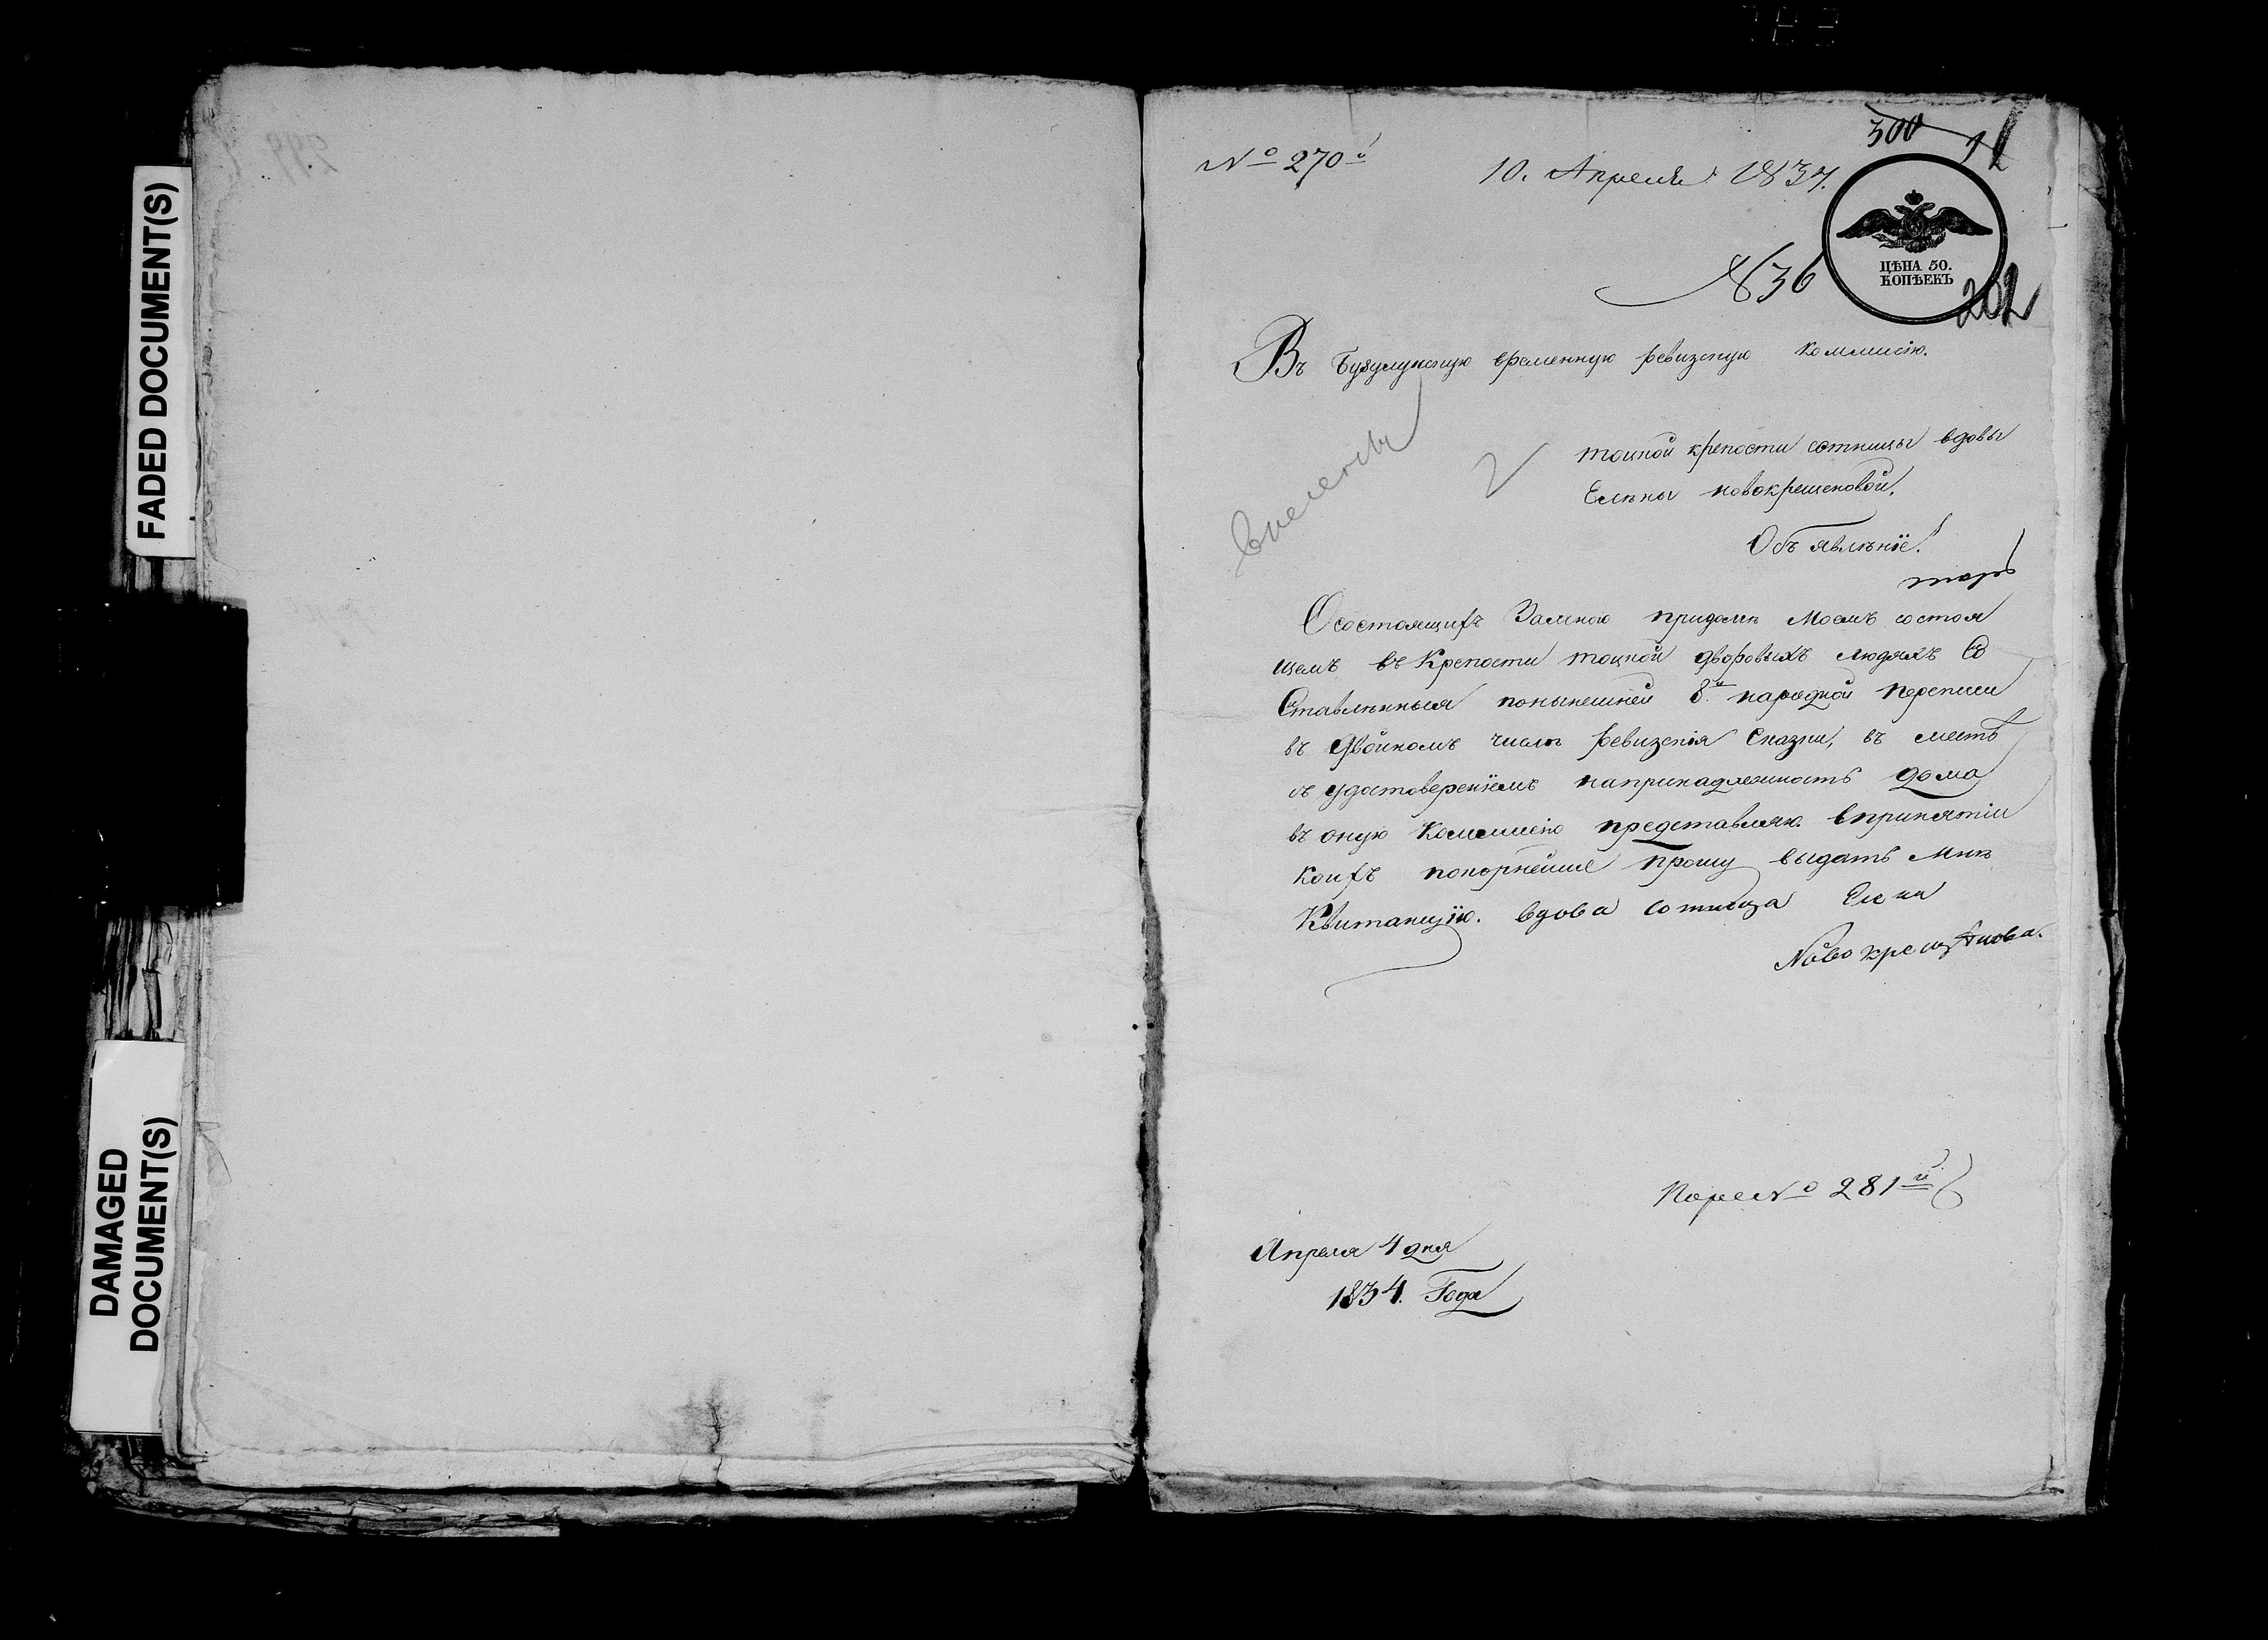 FADED DOCUMENT(S)
DAMAGED
DOCUMENT(S)
299
300
№ 270й
10. Апреля 1834.
836
ЦѢНА 50.
КОПѢЕКЪ
202
Въ Бузулукскую временную ревизскую Коммисію.
тоцкой крепости сотницы вдовы
Елѣны новокрещеновой,
Объявленіе.
Осостоящихъ Замною придомѣ Моемъ состоя
щемъ въ Крепости тоцкой дворовыхъ людяхъ Со
Ставлѣнныя понынешней 8й народной переписи
въ двойномъ числѣ ревизскія Сказки, въ месть
съ удостовереніемъ напринадлежность дома
въ оную Коммисію представляю. впринятіи
коихъ покорнейше прошу выдать Мнѣ
Квитанцїю. вдова сотница Елена
Новокрещѣнова.
№ 281й
Апреля 4 дня
1834. Года